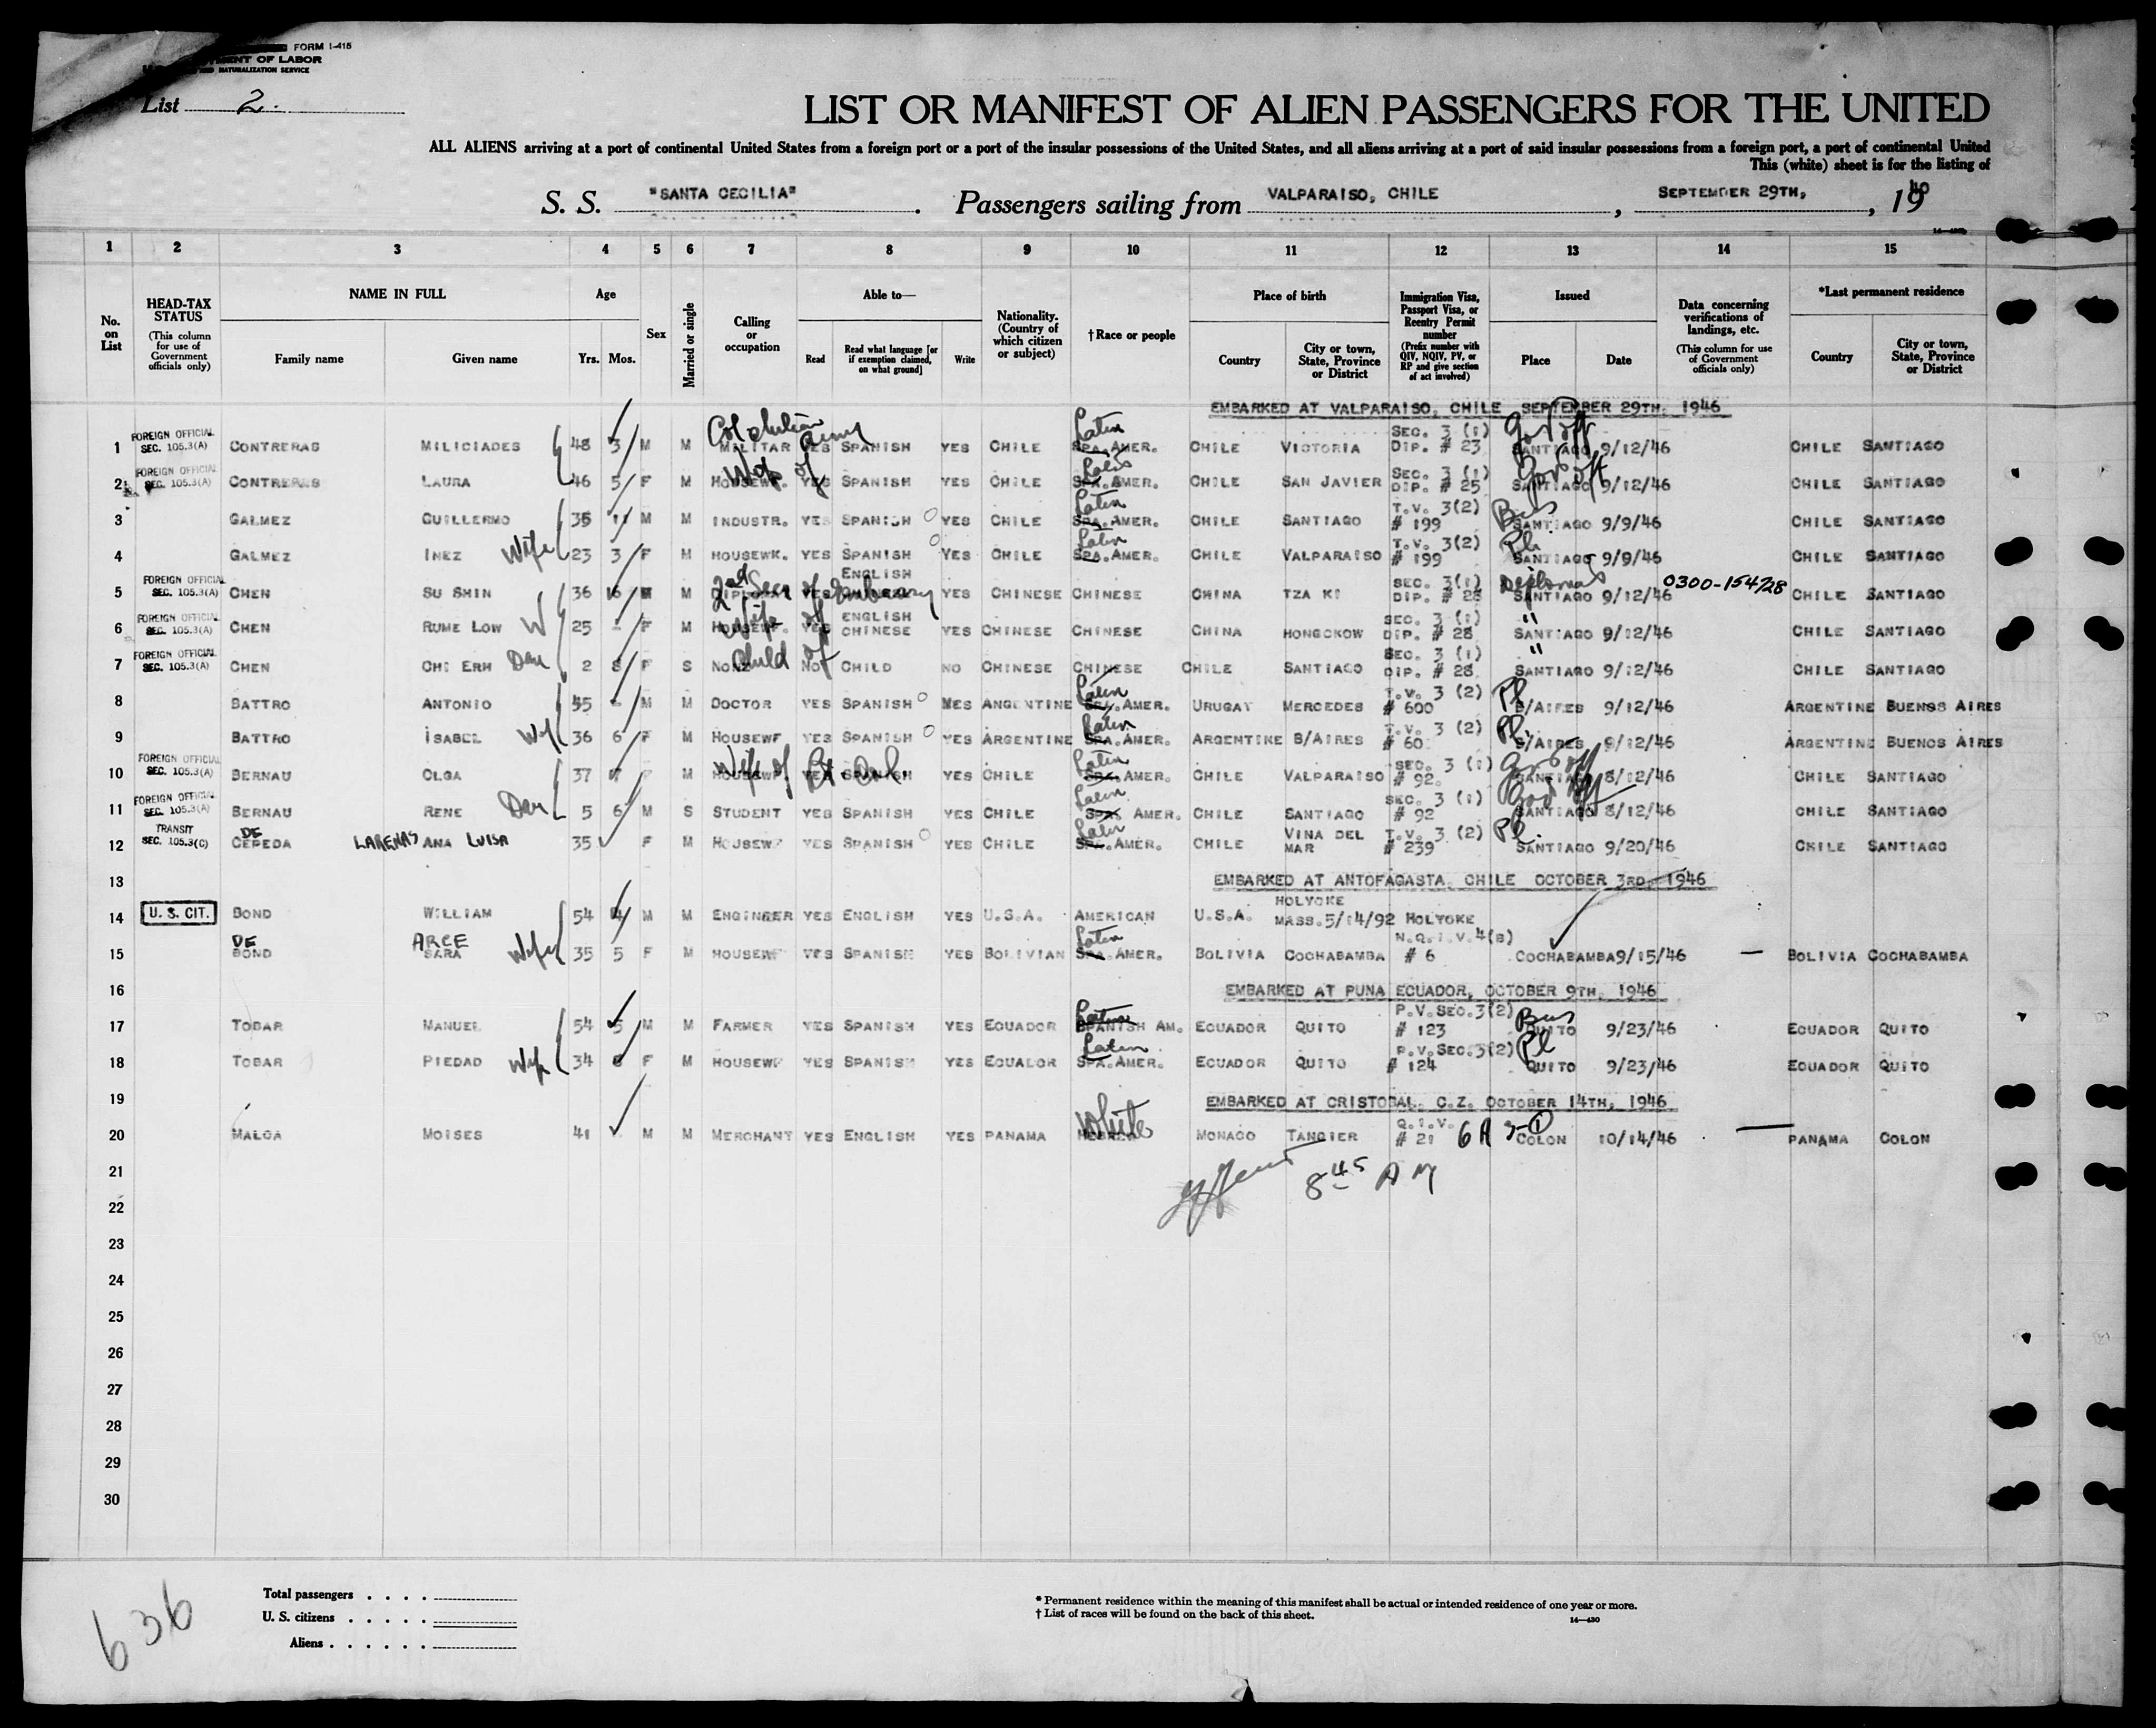 FORM I-415
MENT OF LABOR
NATURALIZATION SERVICE
List 2.
LIST OR MANIFEST OF ALIEN PASSENGERS FOR THE UNITED
ALL ALIENS arriving at a port of continental United States from a foreign port or a part of the insular possessions of the United States, and all aliens arriving at a port of said insular possessions from a foreign port, a part of continental United
This (white) sheet is for the listing of
S. S. "SANTA CECILIA". Passengers sailing from VALPARAISO, CHILE, SEPTEMBER 29TH, , 19
1 2 3 4 5 6 7 8 9 10 11 12 13 14 15
No. on List
HEAD-TAX STATUS (This column for use of Government officials only)
NAME IN FULL Family name Given name
Age Yrs. Mos.
Sex
Married or single
Calling or occupation
Able to— Read Read what language [or if exemption claimed, on what ground] Write
Nationality. (Country of which citizen or subject)
† Race or people
Place of birth Country City or town, State, Province or District
Immigration Visa, Passport Visa, or Reentry Permit number (Prefix number with QIV, NQIV, PV, or RP and give section of act involved)
Issued Place Date
Data concerning verifications of landings, etc. (This column for use of Government officials only)
*Last permanent residence Country City or town, State, Province or District
EMBARKED AT VALPARAISO, CHILE SEPTEMBER 29TH, 1946
1 FOREIGN OFFICIAL SEC. 105.3(A) CONTRERAS MILICIADES 48 3 M M Col Army MILITAR YES SPANISH YES CHILE Latin SPA. AMER. CHILE VICTORIA SEC. 3 (1) DIP. # 23 Gov off SANTIAGO 9/12/46 CHILE SANTIAGO
2 FOREIGN OFFICIAL SEC. 105.3(A) CONTRERAS LAURA 46 5 F M Wife of HOUSEWF. YES SPANISH YES CHILE Latin SPA. AMER. CHILE SAN JAVIER SEC. 3 (1) DIP. # 25 Gov off SANTIAGO 9/12/46 CHILE SANTIAGO
3 GALMEZ GUILLERMO 35 11 M M INDUSTR. YES SPANISH YES CHILE Latin SPA. AMER. CHILE SANTIAGO T.V. 3(2) # 199 Bus SANTIAGO 9/9/46 CHILE SANTIAGO
4 GALMEZ INEZ Wife 23 3 F M HOUSEWK. YES SPANISH YES CHILE Latin SPA. AMER. CHILE VALPARAISO T.V. 3(2) # 199 Pl. SANTIAGO 9/9/46 CHILE SANTIAGO
5 FOREIGN OFFICIAL SEC. 105.3(A) CHEN SU SHIN 36 M M 2nd Secr of Embassy YES ENGLISH CHINESE YES CHINESE CHINESE CHINA TZA KI SEC. 3(1) DIP. # 28 Diplomat SANTIAGO 9/12/46 0300-154/28 CHILE SANTIAGO
6 FOREIGN OFFICIAL SEC. 105.3(A) CHEN RUME LOW W 25 - F M Wife of HOUSEWF. YES ENGLISH CHINESE YES CHINESE CHINESE CHINA HONGCKOW SEC. 3 (1) DIP. # 28 " SANTIAGO 9/12/46 CHILE SANTIAGO
7 FOREIGN OFFICIAL SEC. 105.3(A) CHEN CHI ERH Dau 2 8 F S Child of NONE NOT CHILD NO CHINESE CHINESE CHILE SANTIAGO SEC. 3 (1) DIP. # 28 " SANTIAGO 9/12/46 CHILE SANTIAGO
8 BATTRO ANTONIO 45 - M M DOCTOR YES SPANISH YES ARGENTINE Latin SPA. AMER. URUGAY MERCEDES T.V. 3 (2) # 600 Pl B/AIRES 9/12/46 ARGENTINE BUENOS AIRES
9 BATTRO ISABEL Wf 36 6 F M HOUSEWF YES SPANISH YES ARGENTINE Latin SPA. AMER. ARGENTINE B/AIRES T.V. 3 (2) # 60 Pl. B/AIRES 9/12/46 ARGENTINE BUENOS AIRES
10 FOREIGN OFFICIAL SEC. 105.3(A) BERNAU OLGA 37 F M Wife of HOUSEWF. YES SPANISH YES CHILE Latin SPA. AMER. CHILE VALPARAISO SEC. 3 (1) # 92. Gov off SANTIAGO 8/12/46 CHILE SANTIAGO
11 FOREIGN OFFICIAL SEC. 105.3(A) BERNAU RENE Dau 5 6 M S STUDENT YES SPANISH YES CHILE Latin SPA. AMER. CHILE SANTIAGO SEC. 3 (1) # 92 Gov off SANTIAGO 8/12/46 CHILE SANTIAGO
12 TRANSIT SEC. 105.3(C) DE CEPEDA LARENAS ANA LUISA 35 F M HOUSEWF YES SPANISH YES CHILE Latin SPA. AMER. CHILE VINA DEL MAR T.V. 3 (2) # 239 Pl. SANTIAGO 9/20/46 CHILE SANTIAGO
13 EMBARKED AT ANTOFAGASTA, CHILE OCTOBER 3RD, 1946
14 U. S. CIT. BOND WILLIAM 54 4 M M ENGINEER YES ENGLISH YES U.S.A. AMERICAN U.S.A. HOLYOKE MASS. 5/14/92 HOLYOKE
15 DE BOND ARCE SARA Wife 35 5 F M HOUSEWF YES SPANISH YES BOLIVIAN Latin SPA. AMER. BOLIVIA COCHABAMBA N.Q.I.V. 4(B) # 6 COCHABAMBA 9/15/46 — BOLIVIA COCHABAMBA
16 EMBARKED AT PUNA ECUADOR, OCTOBER 9TH, 1946
17 TOBAR MANUEL 54 5 M M FARMER YES SPANISH YES ECUADOR Latin SPANISH AM. ECUADOR QUITO P.V. SEC. 3(2) # 123 Bus QUITO 9/23/46 ECUADOR QUITO
18 TOBAR PIEDAD Wife 34 6 F M HOUSEWF YES SPANISH YES ECUADOR Latin SPA. AMER. ECUADOR QUITO P.V. SEC. 3(2) # 124 Pl QUITO 9/23/46 ECUADOR QUITO
19 EMBARKED AT CRISTOBAL. C.Z. OCTOBER 14TH, 1946
20 MALCA MOISES 41 M M MERCHANT YES ENGLISH YES PANAMA White MONACO TANGIER Q.I.V. # 21 6A 3-1 COLON 10/14/46 — PANAMA COLON
21 8 45 A M
22
23
24
25
26
27
28
29
30
636
Total passengers . . . .
U. S. citizens . . . . .
Aliens . . . . . .
* Permanent residence within the meaning of this manifest shall be actual or intended residence of one year or more.
† List of races will be found on the back of this sheet.
14—430